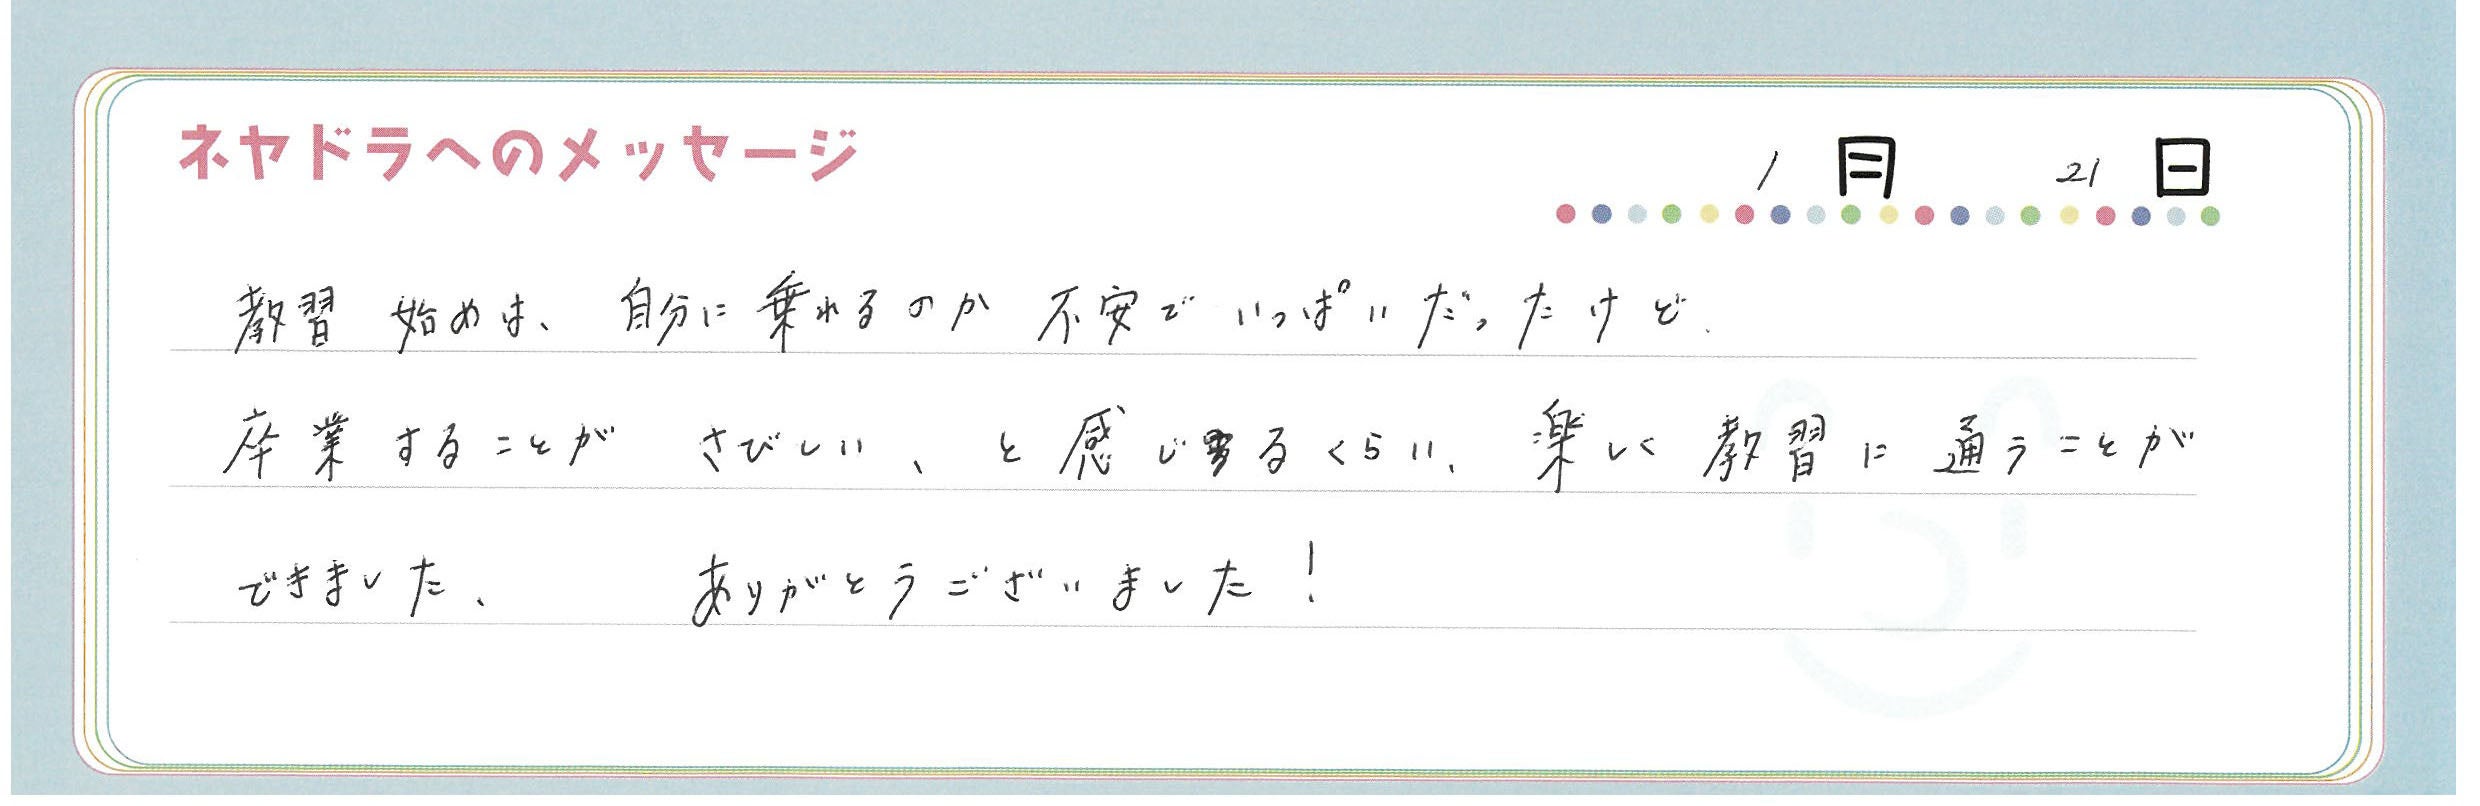 ネヤドラへのメッセージ
1月 21日
教習 始めは、自分に乗れるのか 不安で いっぱいだったけど、
卒業することが さびしい、と感じるくらい、楽しく教習に通うことが
できました、 ありがとうございました！